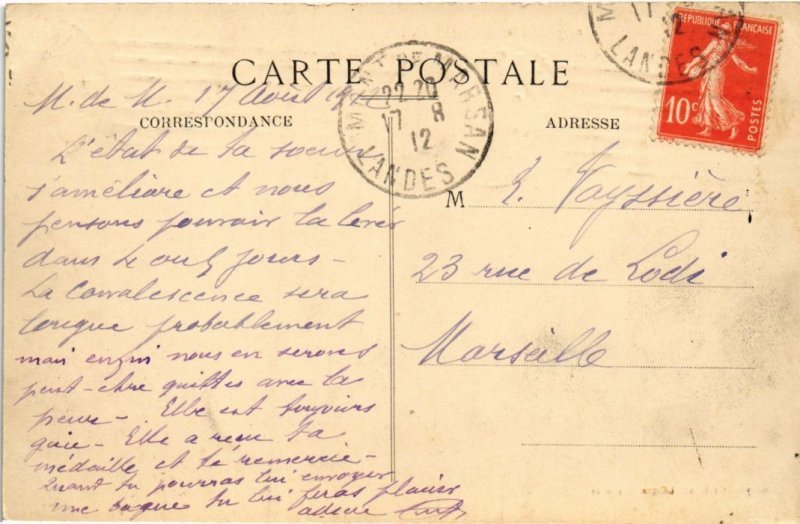 CARTE POSTALE
CORRESPONDANCE
ADRESSE
RÉPUBLIQUE FRANÇAISE
10c
POSTES
LANDES
MT DE MARSAN
22 30
17 8
12
LANDES
M. de M. 17 Août
L'état de ta soeur
s'améliore et nous
pensons pouvoir la lever
dans 4 ou 5 jours -
La convalescence sera
longue probablement
mais enfin nous en serons
peut-être quittes avec la
peur - Elle est toujours
gaie - Elle a reçu ta
médaille et te remercie -
Quant tu pourras lui envoyer
une bague tu lui feras plaisir
M E. Vayssière
23 rue de Lodi
Marseille